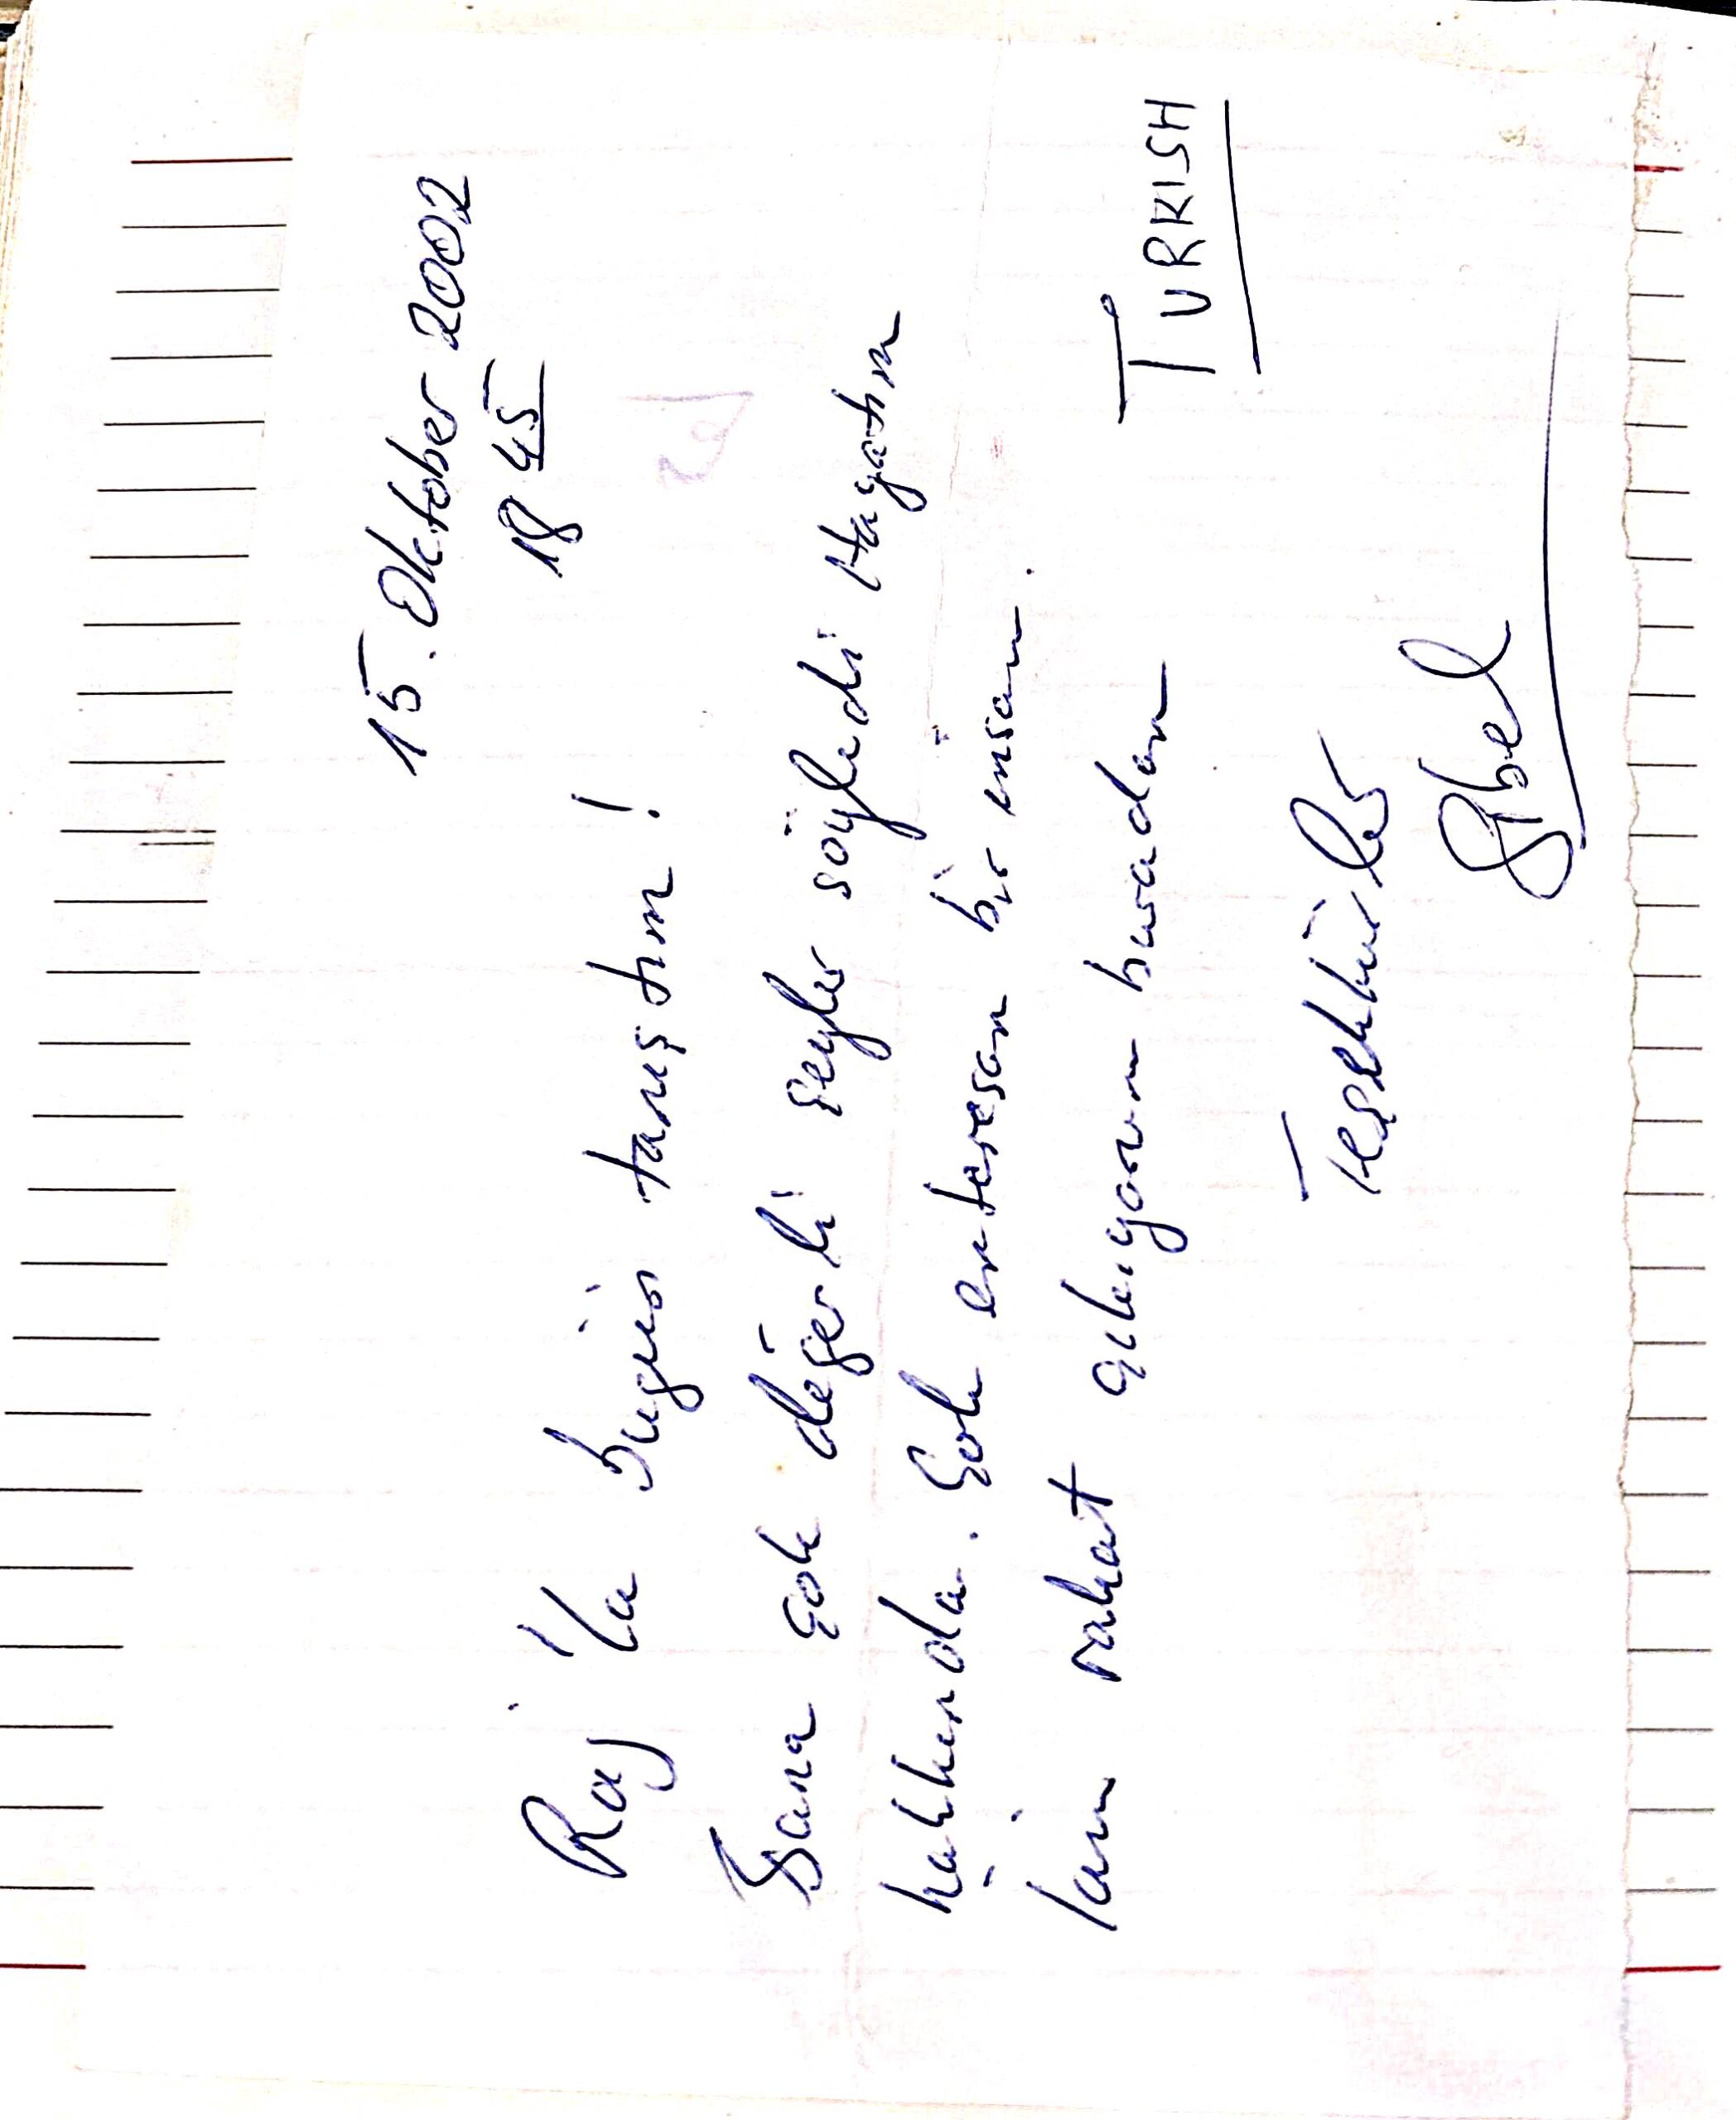 15. Oktober 2002
18 45
Raj 'la bugün tanıştım!
Bana çok değerli şeyler söyledi Hayatım
hakkında. Çok enteresan bir insan.
İçim rahat çıkıyorum buradan
TURKISH
Teşekkürler
Sibel